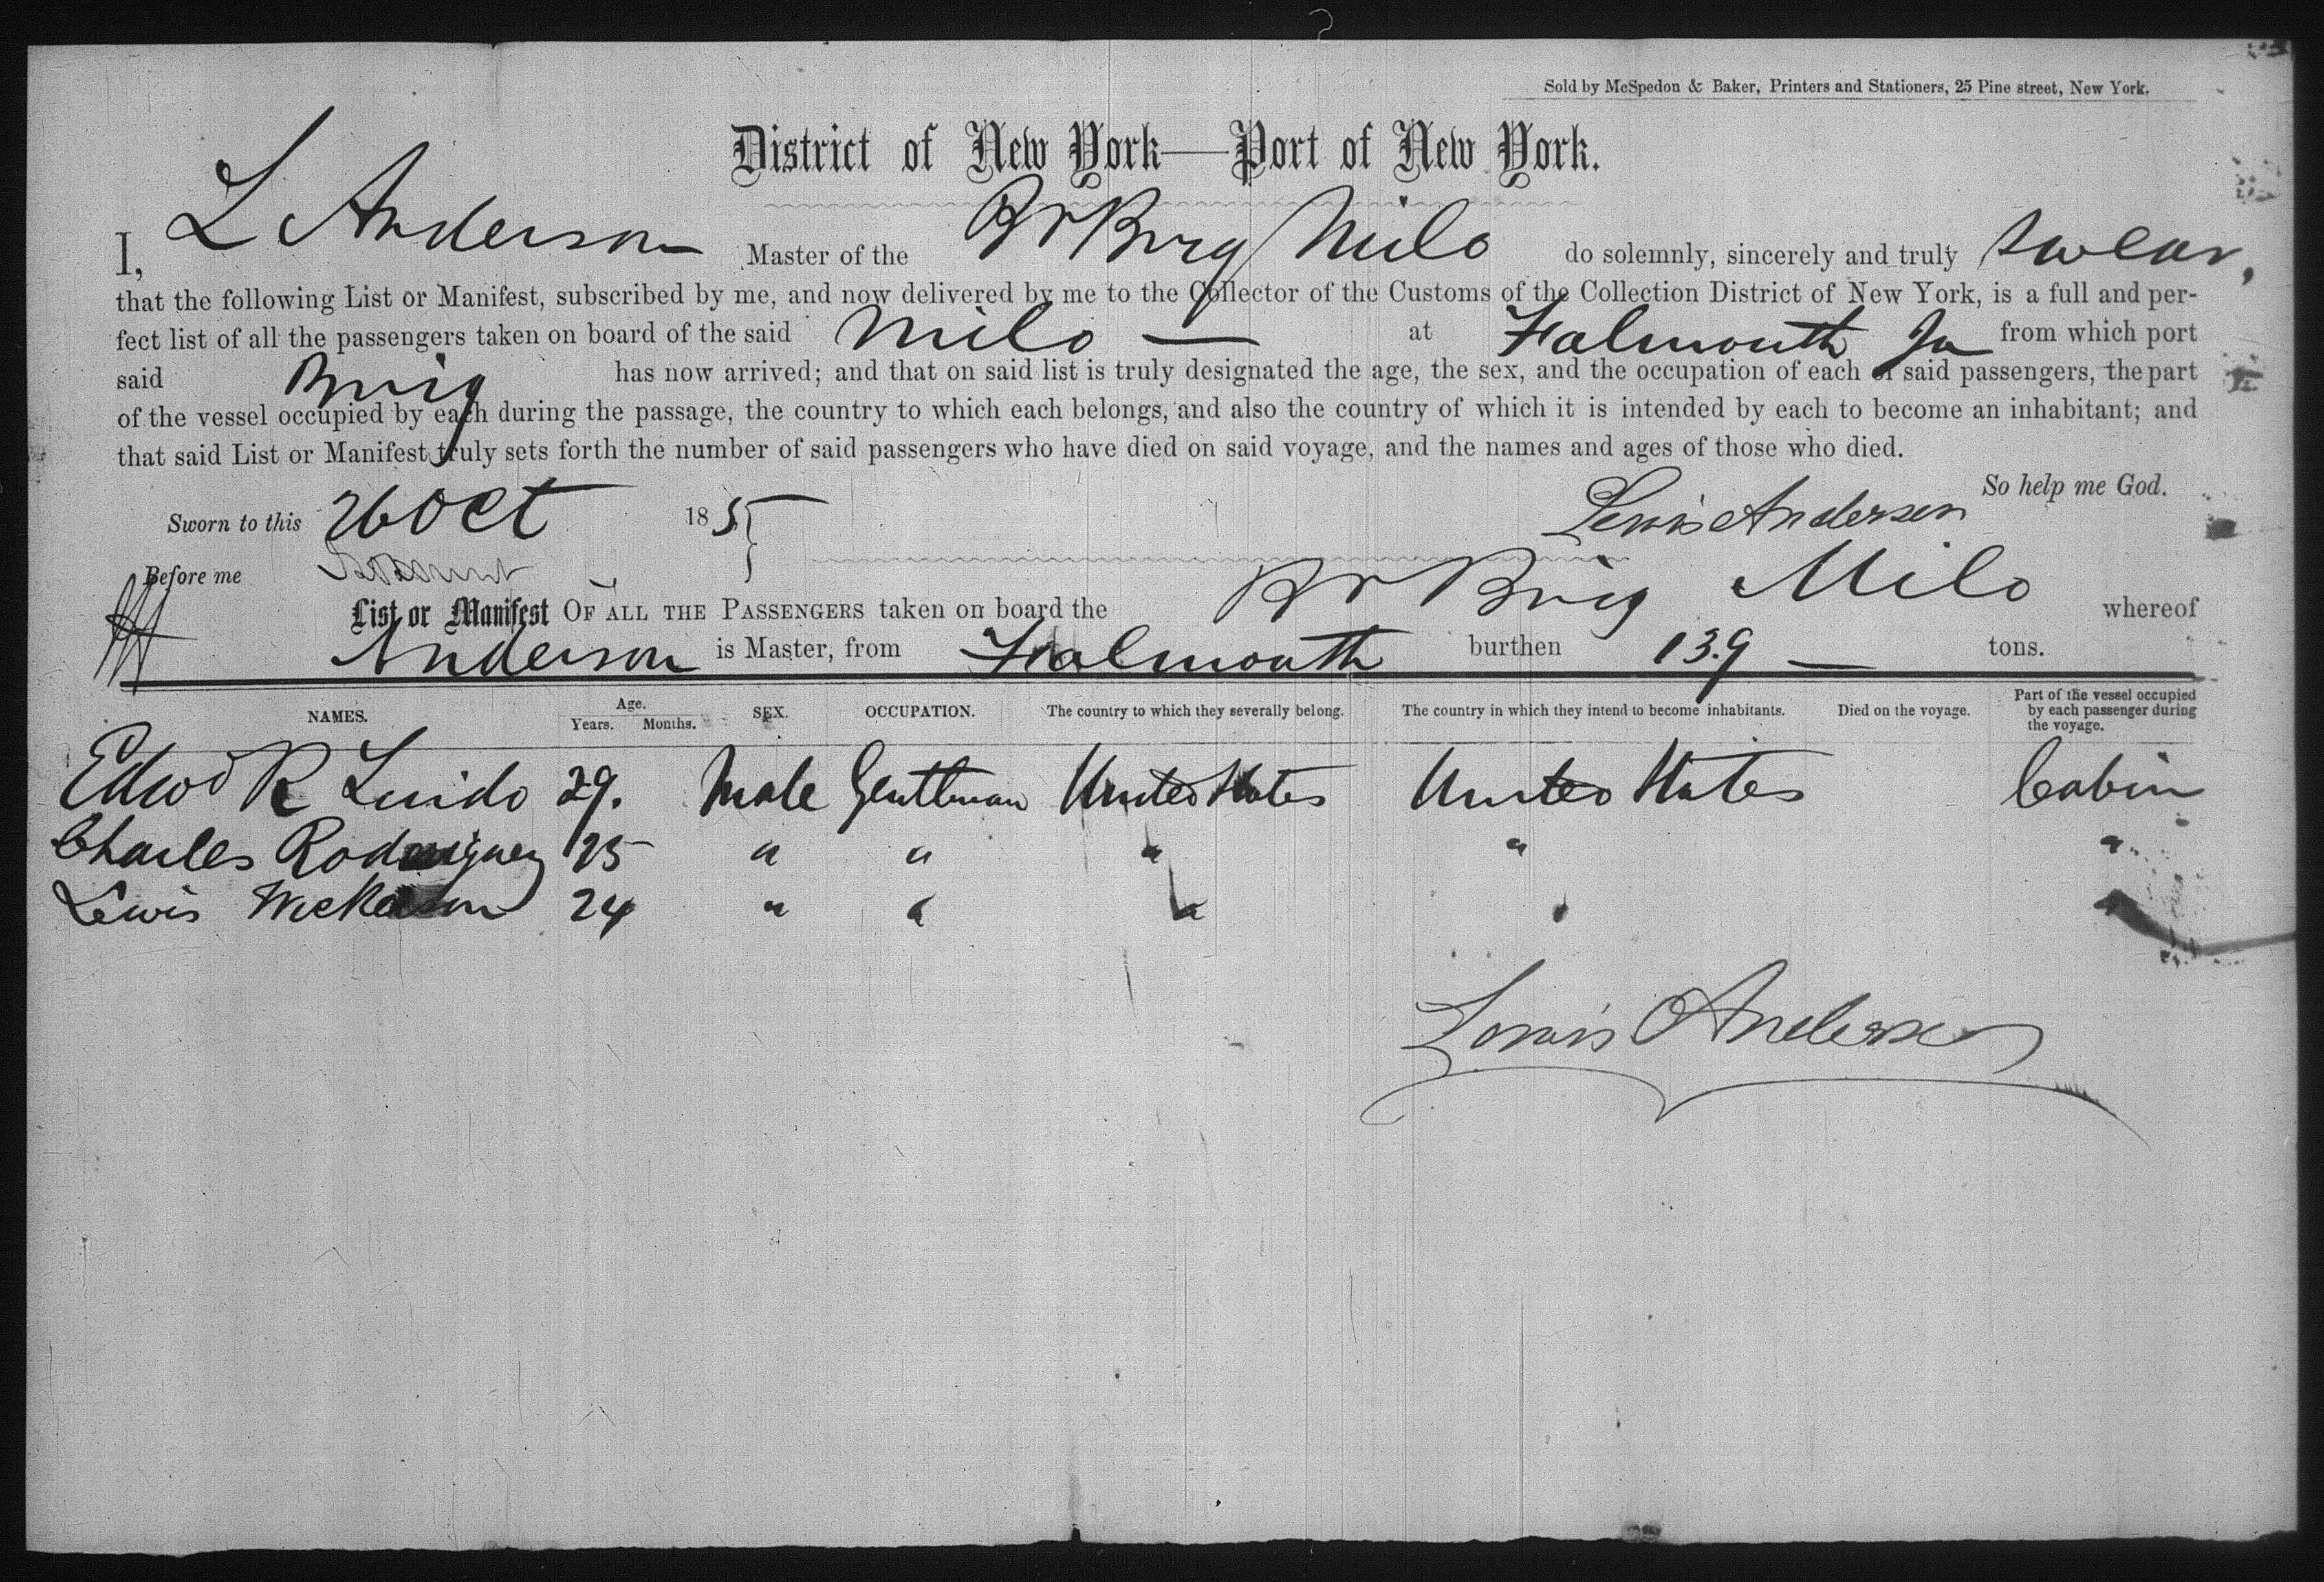 Sold by McSpedon & Baker, Printers and Stationers, 25 Pine street, New York.
District of New York—Port of New York.
I, L Anderson Master of the Br Brig Milo do solemnly, sincerely and truly swear,
that the following List or Manifest, subscribed by me, and now delivered by me to the Collector of the Customs of the Collection District of New York, is a full and per-
fect list of all the passengers taken on board of the said Milo — at Falmouth Ja from which port
said Brig has now arrived; and that on said list is truly designated the age, the sex, and the occupation of each of said passengers, the part
of the vessel occupied by each during the passage, the country to which each belongs, and also the country of which it is intended by each to become an inhabitant; and
that said List or Manifest truly sets forth the number of said passengers who have died on said voyage, and the names and ages of those who died.
So help me God.
Sworn to this 26 Oct 185 Lewis Andersen
Before me
List or Manifest OF ALL THE PASSENGERS taken on board the Br Brig Milo whereof
Anderson is Master, from Falmouth burthen 139 — tons.
NAMES. Age. Years. Months. SEX. OCCUPATION. The country to which they severally belong. The country in which they intend to become inhabitants. Died on the voyage. Part of the vessel occupied by each passenger during the voyage.
Edwd R Lindo 29. Male Gentleman United States United States Cabin
Charles Rodriguez 25 " " " " "
Lewis 24 " " " " "
Lewis Andersen